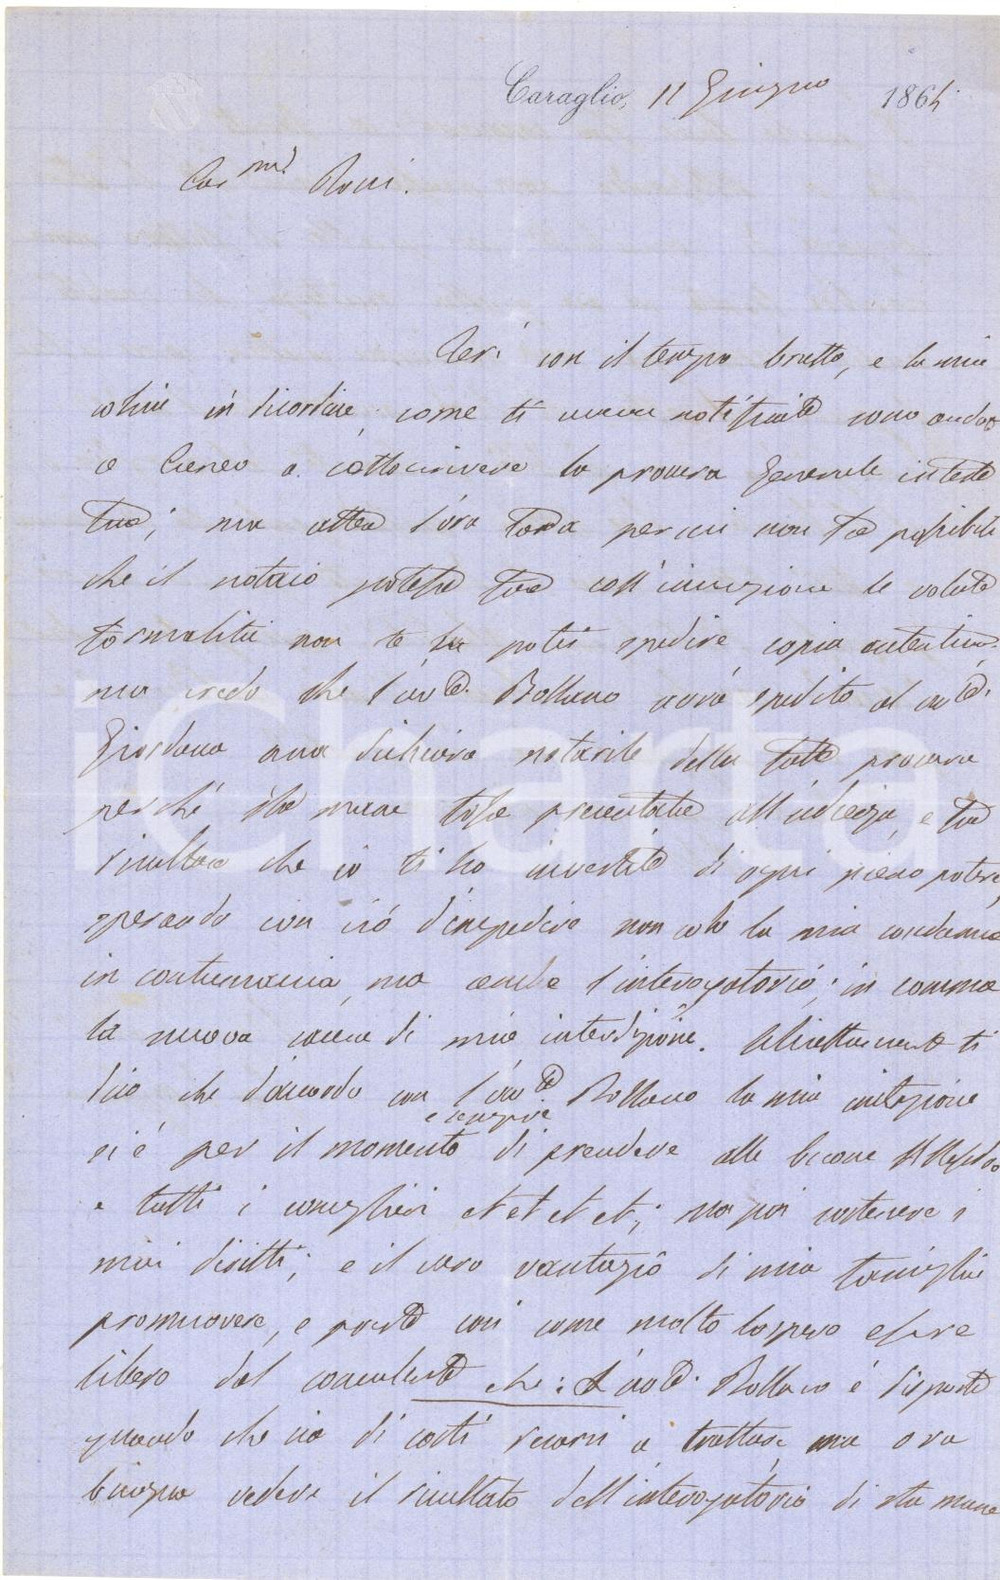 Caraglio, 11 Giugno 1864
Car.mo
Ieri con il tempo brutto, e la mia
come ti aveva notificato sono andato
a Cuneo a sottoscrivere la procura Generale in testa
tua; ma attesa l'ora tarda per cui non fu possibile
che il notaio potesse fare coll'insinuazione le volute
formalità non te potei spedire copia autentica.
ma credo che l'avv. Bollano avrà spedito al avv.
Giordana una dichiara notarile della fatta procura
perché sta mane fosse presentata all'udienza, e far
risultare che io ti ho investito di ogni pieno potere,
sperando con ciò d'impedire non solo la mia condanna
in contumacia, ma anche l'interogatorio; in somma
la nuova causa di mia interdizione. ti
dico che d'accordo con l'avv. Bollano la mia intenzione
e sempre
si è per il momento di prendere alle buone
e tutti i consiglieri et et et et; ma poi sostenere i
miei diritti; e il vero vantagio di mia famiglia
promuovere, e presto così come molto lo spero essere
libero dal consulente che: L'avv. Bollano è disposto
quando che sia di costì recarsi a trattare ma ora
bisogna vedere il risultato dell'interogatorio di sta mane
iCharta